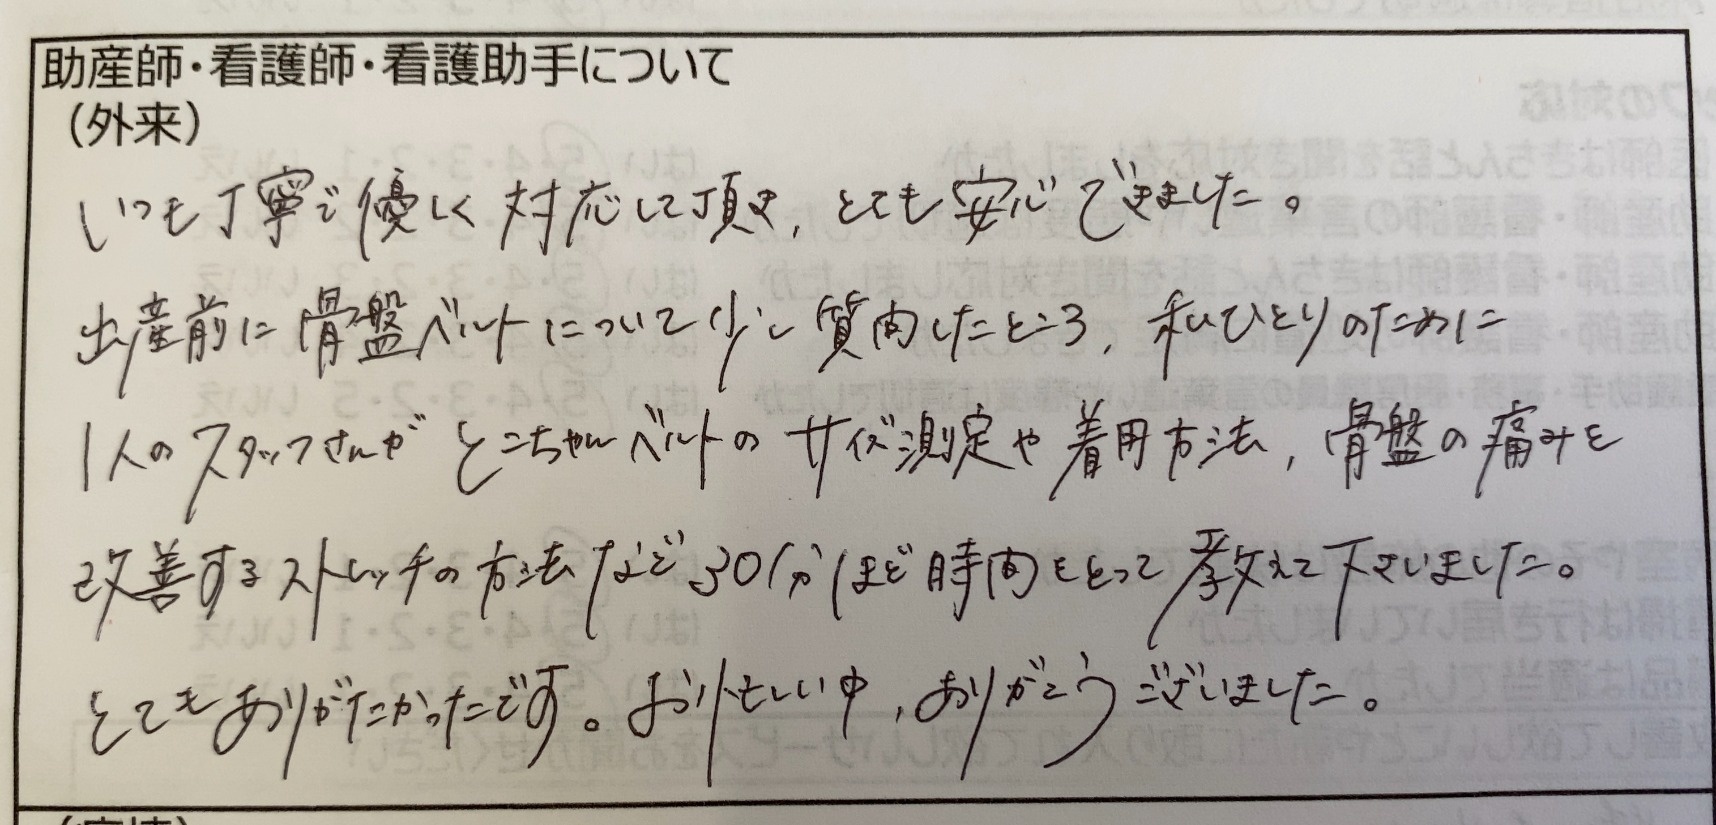 助産師・看護師・看護助手について
（外来）
いつも丁寧で優しく対応して頂き、とても安心できました。
出産前に骨盤ベルトについて少し質問したところ、私ひとりのために
1人のスタッフさんがとこちゃんベルトのサイズ測定や着用方法、骨盤の痛みを
改善するストレッチの方法など30分ほど時間をとって教えて下さいました。
とてもありがたかったです。お忙しい中、ありがとうございました。